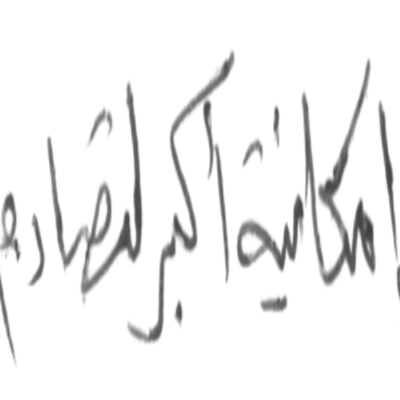 إمكانية أكبر لتصادم